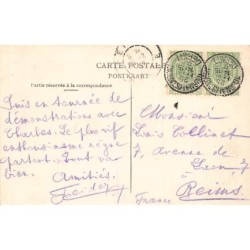 CARTE POSTALE
POSTKAART
Côté réservé à la correspondance
Suis en tournée de
démonstrations avec
Charles. Le plus vif
enthousiasme règne
partout. Tout va
bien.
Amitiés.
Monsieur
Louis Collinet
7, avenue de
Laon, 7
Reims
France